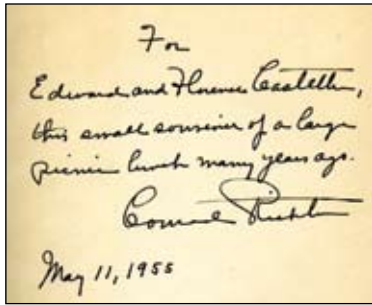 For
Edward and Florence Castelle,
this small souvenir of a large
picnic lunch many years ago.
Conrad Richter
May 11, 1955